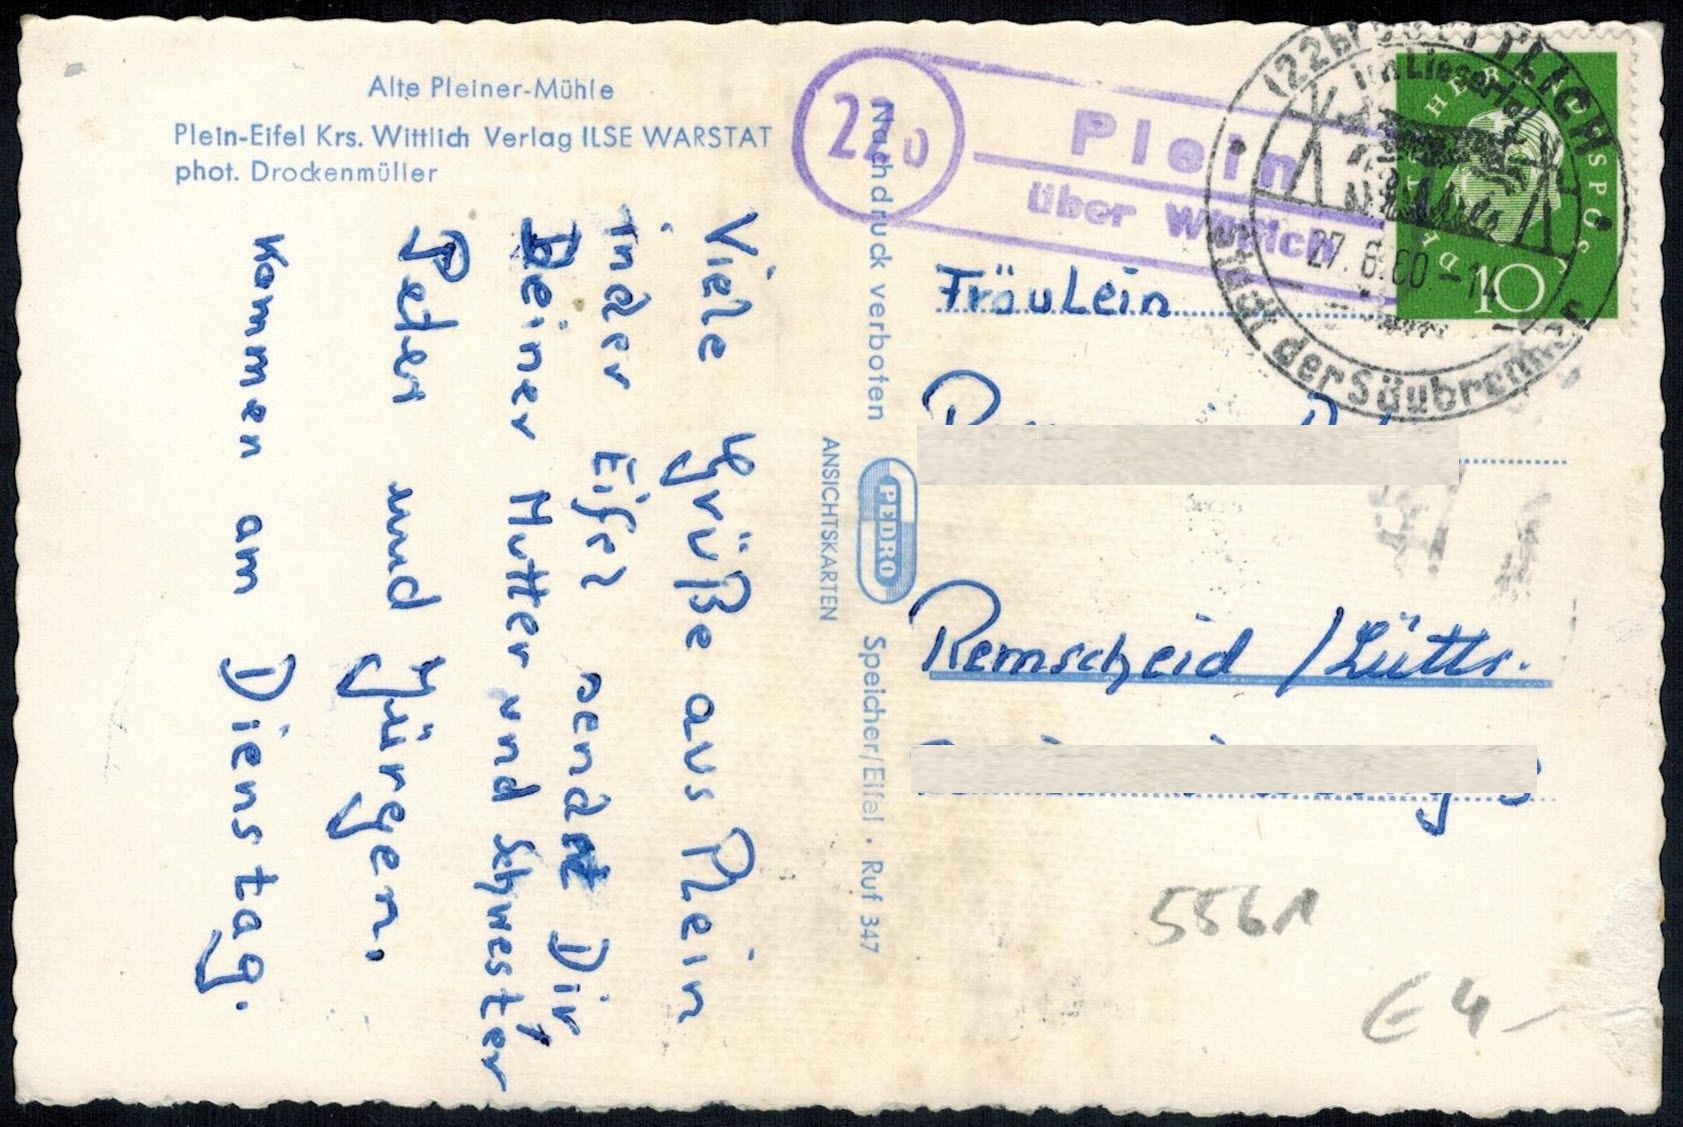 Alte Pleiner-Mühle
Plein-Eifel Krs. Wittlich Verlag ILSE WARSTAT
phot. Drockenmüller
Viele Grüße aus Plein
in der Eifel sendet Dir,
Deiner Mutter und Schwester
Peter und Jürgen.
Kommen am Dienstag.
Nachdruck verboten
PEDRO
ANSICHTSKARTEN
Speicher/Eifel • Ruf 347
22b
Plein
über Wittlich
(22b) WITTLICH
Im Liesertal
27.6.60.-14
Stadt der Säubrenner
10
Fräulein
Remscheid / Lüttr.
5561
€ 4,-